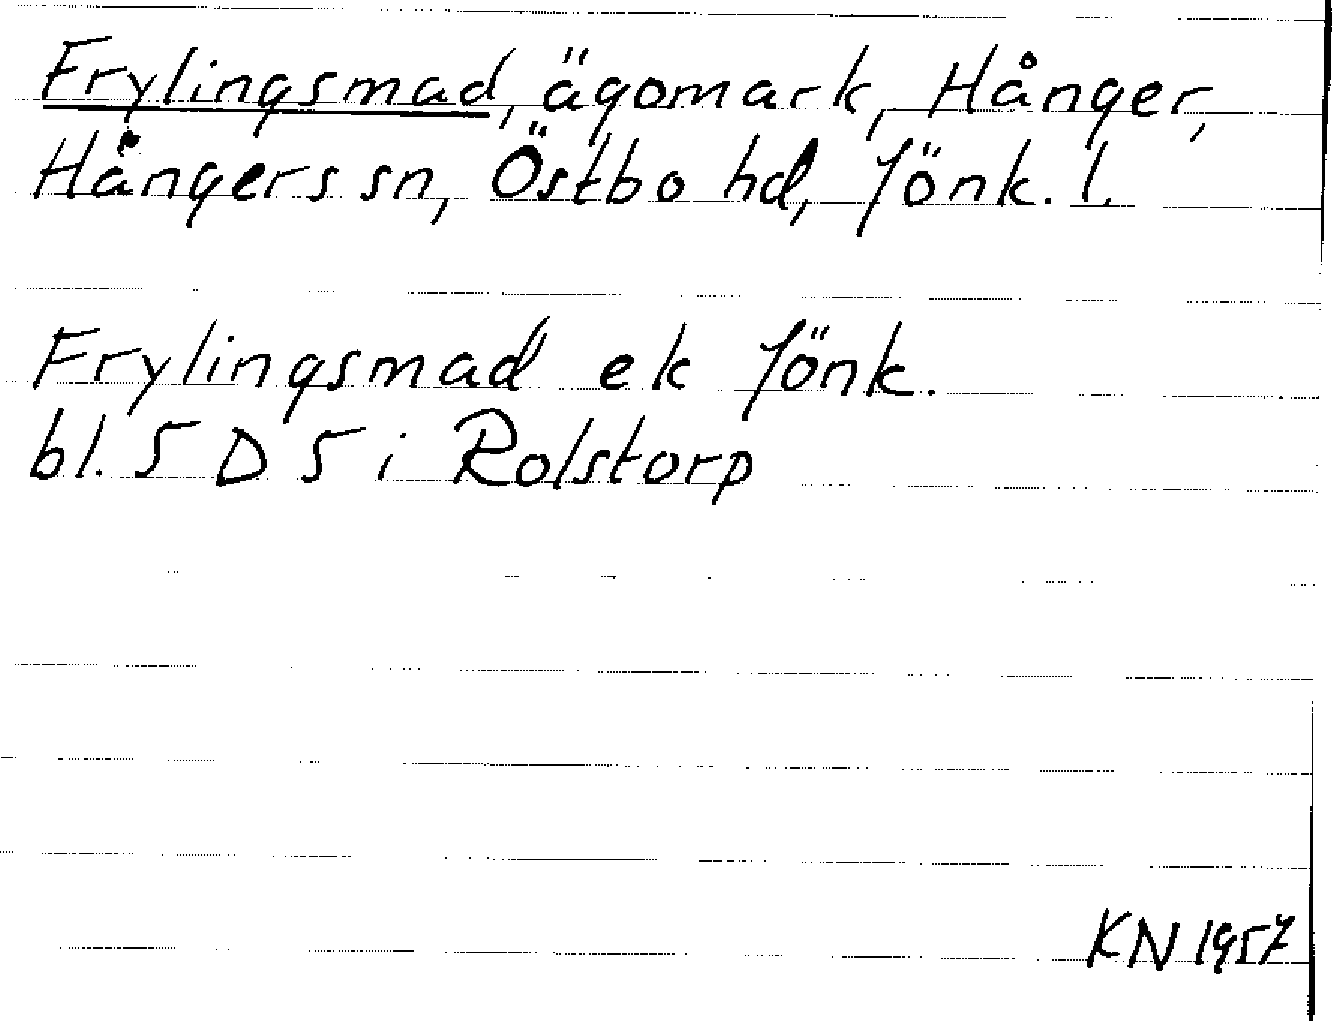 Frylingsmad, ägomark, Hånger,
Hångers sn, Östbo hd, Jönk. l.
Frylingsmad ek Jönk.
bl. 5 D 5 i Rolstorp
KN 1957